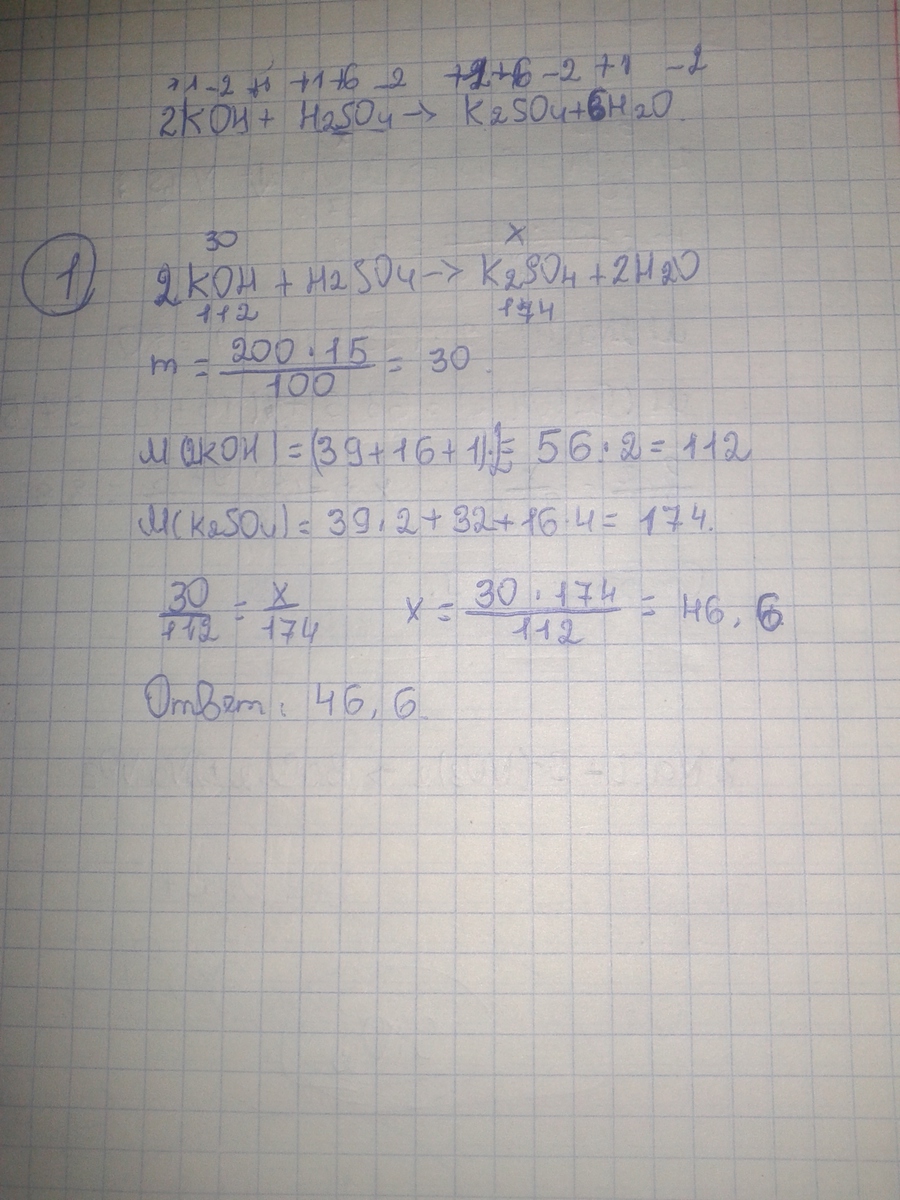 +1 -2 +1 +1 +6 -2 +1 +6 -2 +1 -2
2KOH + H2SO4 → K2SO4 + 6H2O
30 x
1 2KOH + H2SO4 → K2SO4 + 2H2O
112 174
m = 200 · 15 / 100 = 30
M(2KOH) = (39+16+1)·2 = 56 · 2 = 112
M(K2SO4) = 39 · 2 + 32 + 16 · 4 = 174.
30/112 = x/174 x = 30 · 174 / 112 = 46,6
Ответ: 46,6